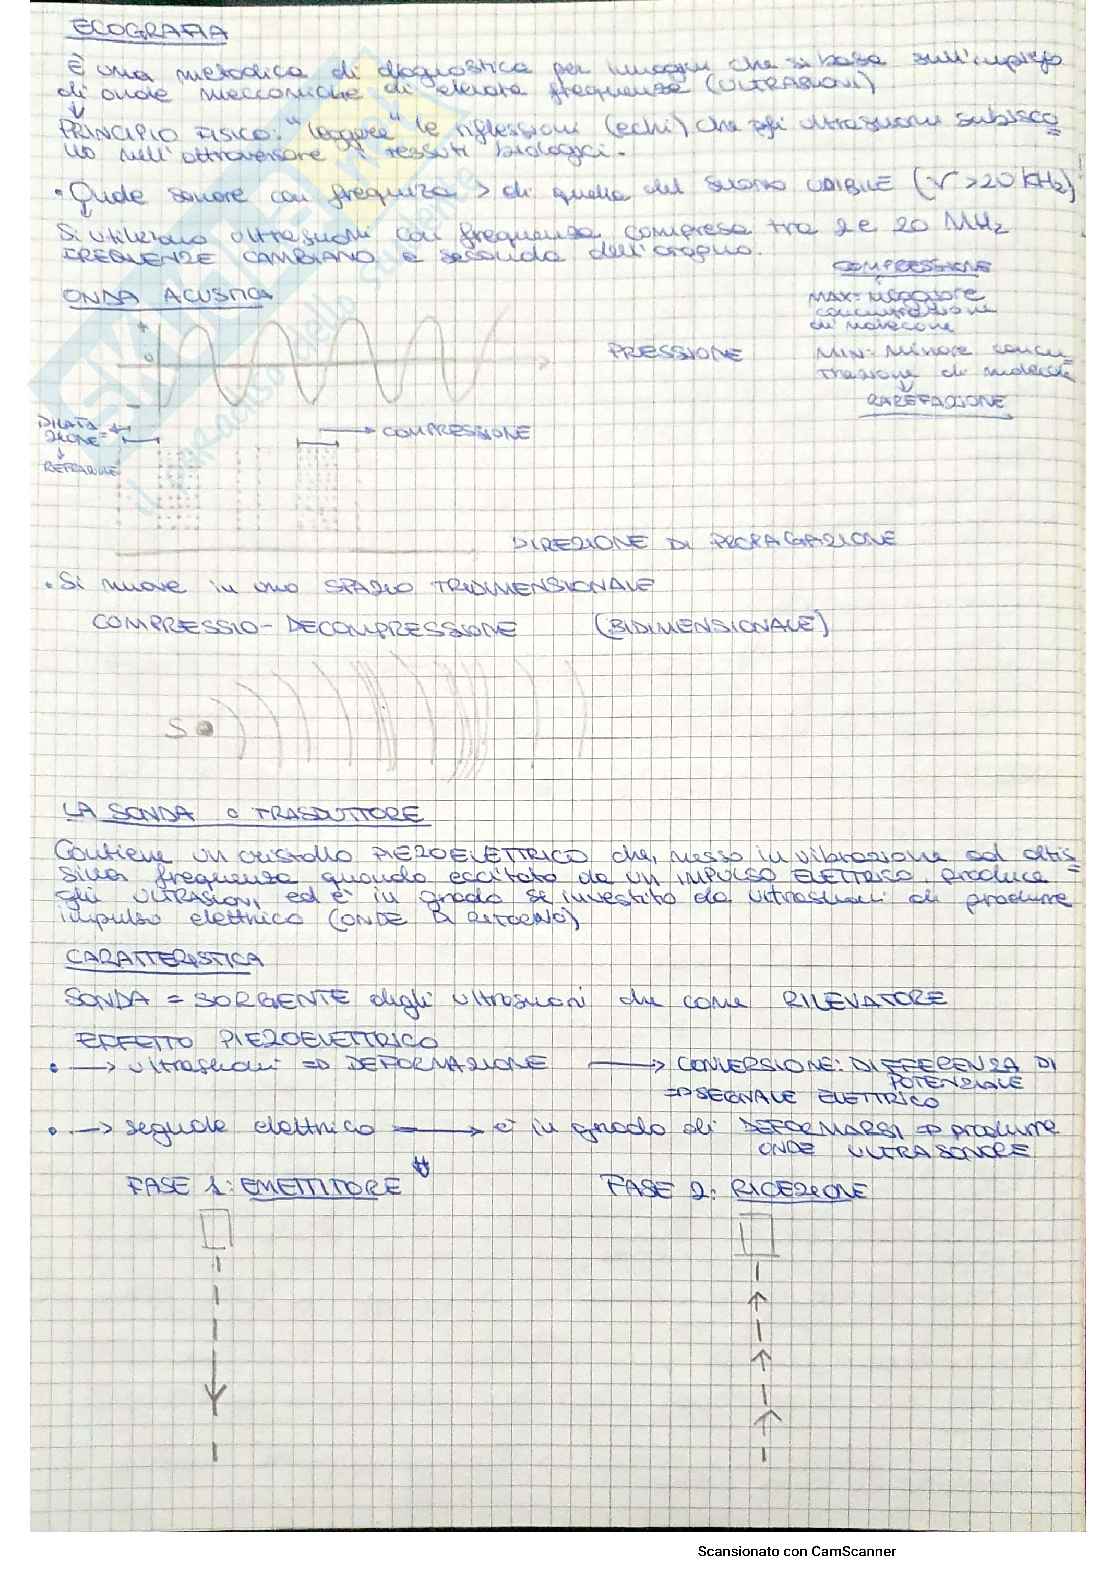 ECOGRAFIA
È una metodica di diagnostica per immagini che si basa sull'impiego
di onde meccaniche di elevata frequenza (ULTRASUONI)
PRINCIPIO FISICO: "leggere" le riflessioni (echi) che gli ultrasuoni subisco=
no nell'attraversare i tessuti biologici.
• Onde sonore con frequenza > di quella del suono UDIBILE (V > 20 KHz)
Si utilizzano ultrasuoni con frequenza compresa tra 2 e 20 MHz
FREQUENZE CAMBIANO a seconda dell'organo.
COMPRESSIONE
ONDA ACUSTICA
MAX= maggiore
concentrazione
di molecole
+
0
-
PRESSIONE
MIN= minore concen=
trazione di molecole
RAREFAZIONE
DILATA
ZIONE=
COMPRESSIONE
DIREZIONE DI PROPAGAZIONE
• Si muove in uno SPAZIO TRIDIMENSIONALE
COMPRESSIO-DECOMPRESSIONE (BIDIMENSIONALE)
S
LA SONDA o TRASDUTTORE
Contiene un cristallo PIEZOELETTRICO che, messo in vibrazione ad altis
sima frequenza quando eccitato da un IMPULSO ELETTRICO, produce =
gli ULTRASUONI, ed è in grado se investito da ultrasuoni di produrre
impulso elettrico (ONDE DI RITORNO)
CARATTERISTICA
SONDA = SORGENTE degli ultrasuoni che come RILEVATORE
EFFETTO PIEZOELETTRICO
• → ultrasuoni ⇒ DEFORMAZIONE → CONVERSIONE: DIFFERENZA DI
POTENZIALE
⇒ SEGNALE ELETTRICO
• → segnale elettrico → è in grado di DEFORMARSI ⇒ produrre
ONDE ULTRASONORE
FASE 1: EMETTITORE
FASE 2: RICEZIONE
Scansionato con CamScanner